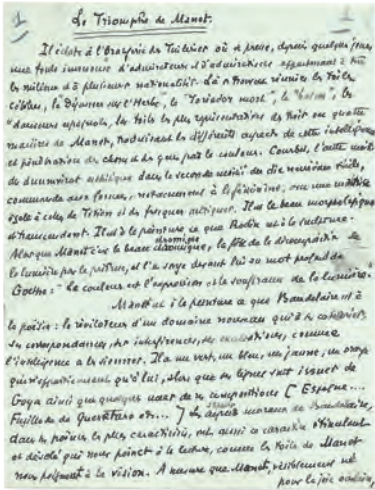 1 Le Triomphe de Manet. 1
Il éclate à l'Orangerie des Tuileries où se presse, depuis quelques jours,
une foule immense d'admirateurs et d'admiratrices appartenant à tous
les milieux et à plusieurs nationalités. Là se trouvent réunies les toiles
célèbres, le Déjeuner sur l'Herbe, le "Toréador mort", le "balcon", les
"danseurs espagnols, les toiles les plus représentatives des trois ou quatre
manières de Manet, traduisant les différents aspects de cette intelligence
et pénétration des choses et des gens par la couleur. Courbet, l'autre moitié
du esthétique dans la seconde moitié du dix neuvième siècle,
commande aux formes, notamment à la féminine, avec une
égale à celles de Titien et des fresques antiques. Il a le beau morphologique
et transcendant. Il est à la peinture ce que Rodin est à la sculpture.
Alors que Manet c'est le beau chromique, la fête de la décomposition de
la lumière par le prisme, et l'on songe devant lui au mot profond de
Goethe: "La couleur est l'expression et la souffrance de la lumière".
Manet est à la peinture ce que Baudelaire est à
la poésie: le révélateur d'un domaine nouveau qui a ses
ses correspondances, ses interférences, ses, comme
l'intelligence a les siennes. Il a un vert, un bleu, un jaune, un rouge
qui n'appartiennent qu'à lui, alors que ses lignes sont issues de
Goya ainsi que quelques unes de ses compositions (Espagne...
Fusillade de Querétaro etc...) Les poèmes de Baudelaire,
dans les poèmes les plus caractérisés, ont aussi ce caractère
et désolé qui nous point à la lecture, comme les toiles de Manet
nous poignent à la vision. A mesure que Manet, visiblement né
pour la joie